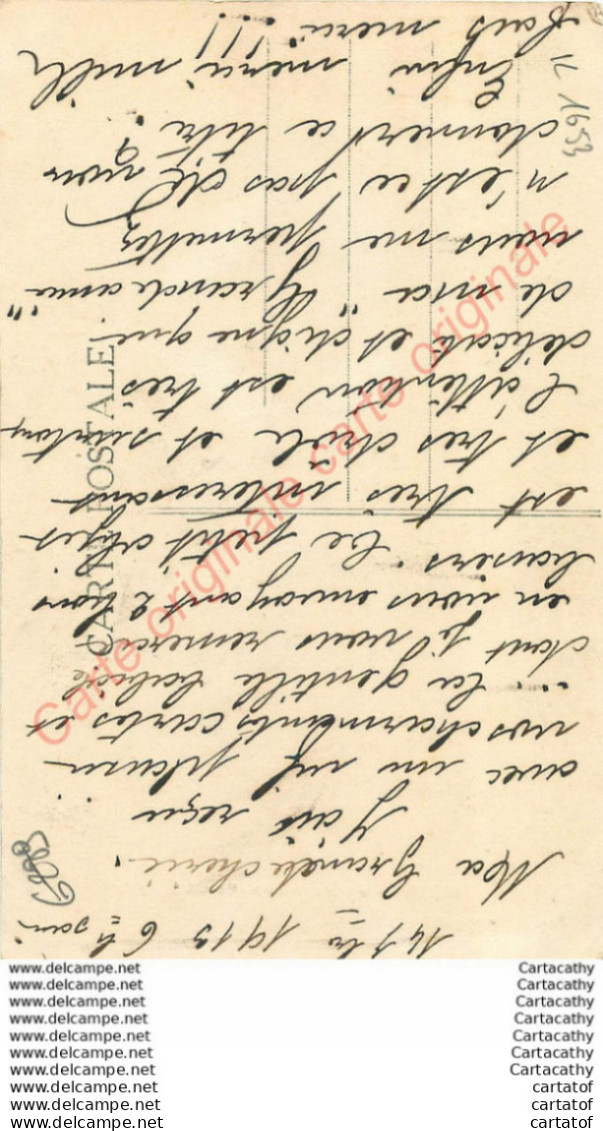 14 1913 6h soir
Ma Grande chérie
J'ai reçu
avec un vif plaisir
vos charmantes cartes et
la gentille babiole
dont je vous remercie
en vous envoyant 2 bons
baisers. Ce petit objet
est très intéressant
et très chic et surtout
l'attention est très
délicate et digne que
de ma "Grande amie"
vous me permettez
n'est ce pas de vous
donner ce titre ?
Enfin merci mille
fois merci !!!
CARTE POSTALE
1653
Carte originale carte originale carte originale
www.delcampe.net Cartacathy
www.delcampe.net Cartacathy
www.delcampe.net Cartacathy
www.delcampe.net Cartacathy
www.delcampe.net Cartacathy
www.delcampe.net Cartacathy
www.delcampe.net Cartacathy
www.delcampe.net cartatof
www.delcampe.net cartatof
www.delcampe.net cartatof